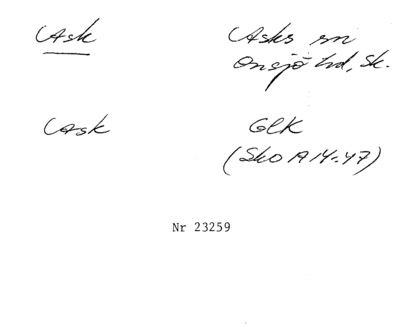 Ask
Asks sn
Onsjö hd, Sk.
Ask
GEK
(Sko A 14-47)
Nr 23259